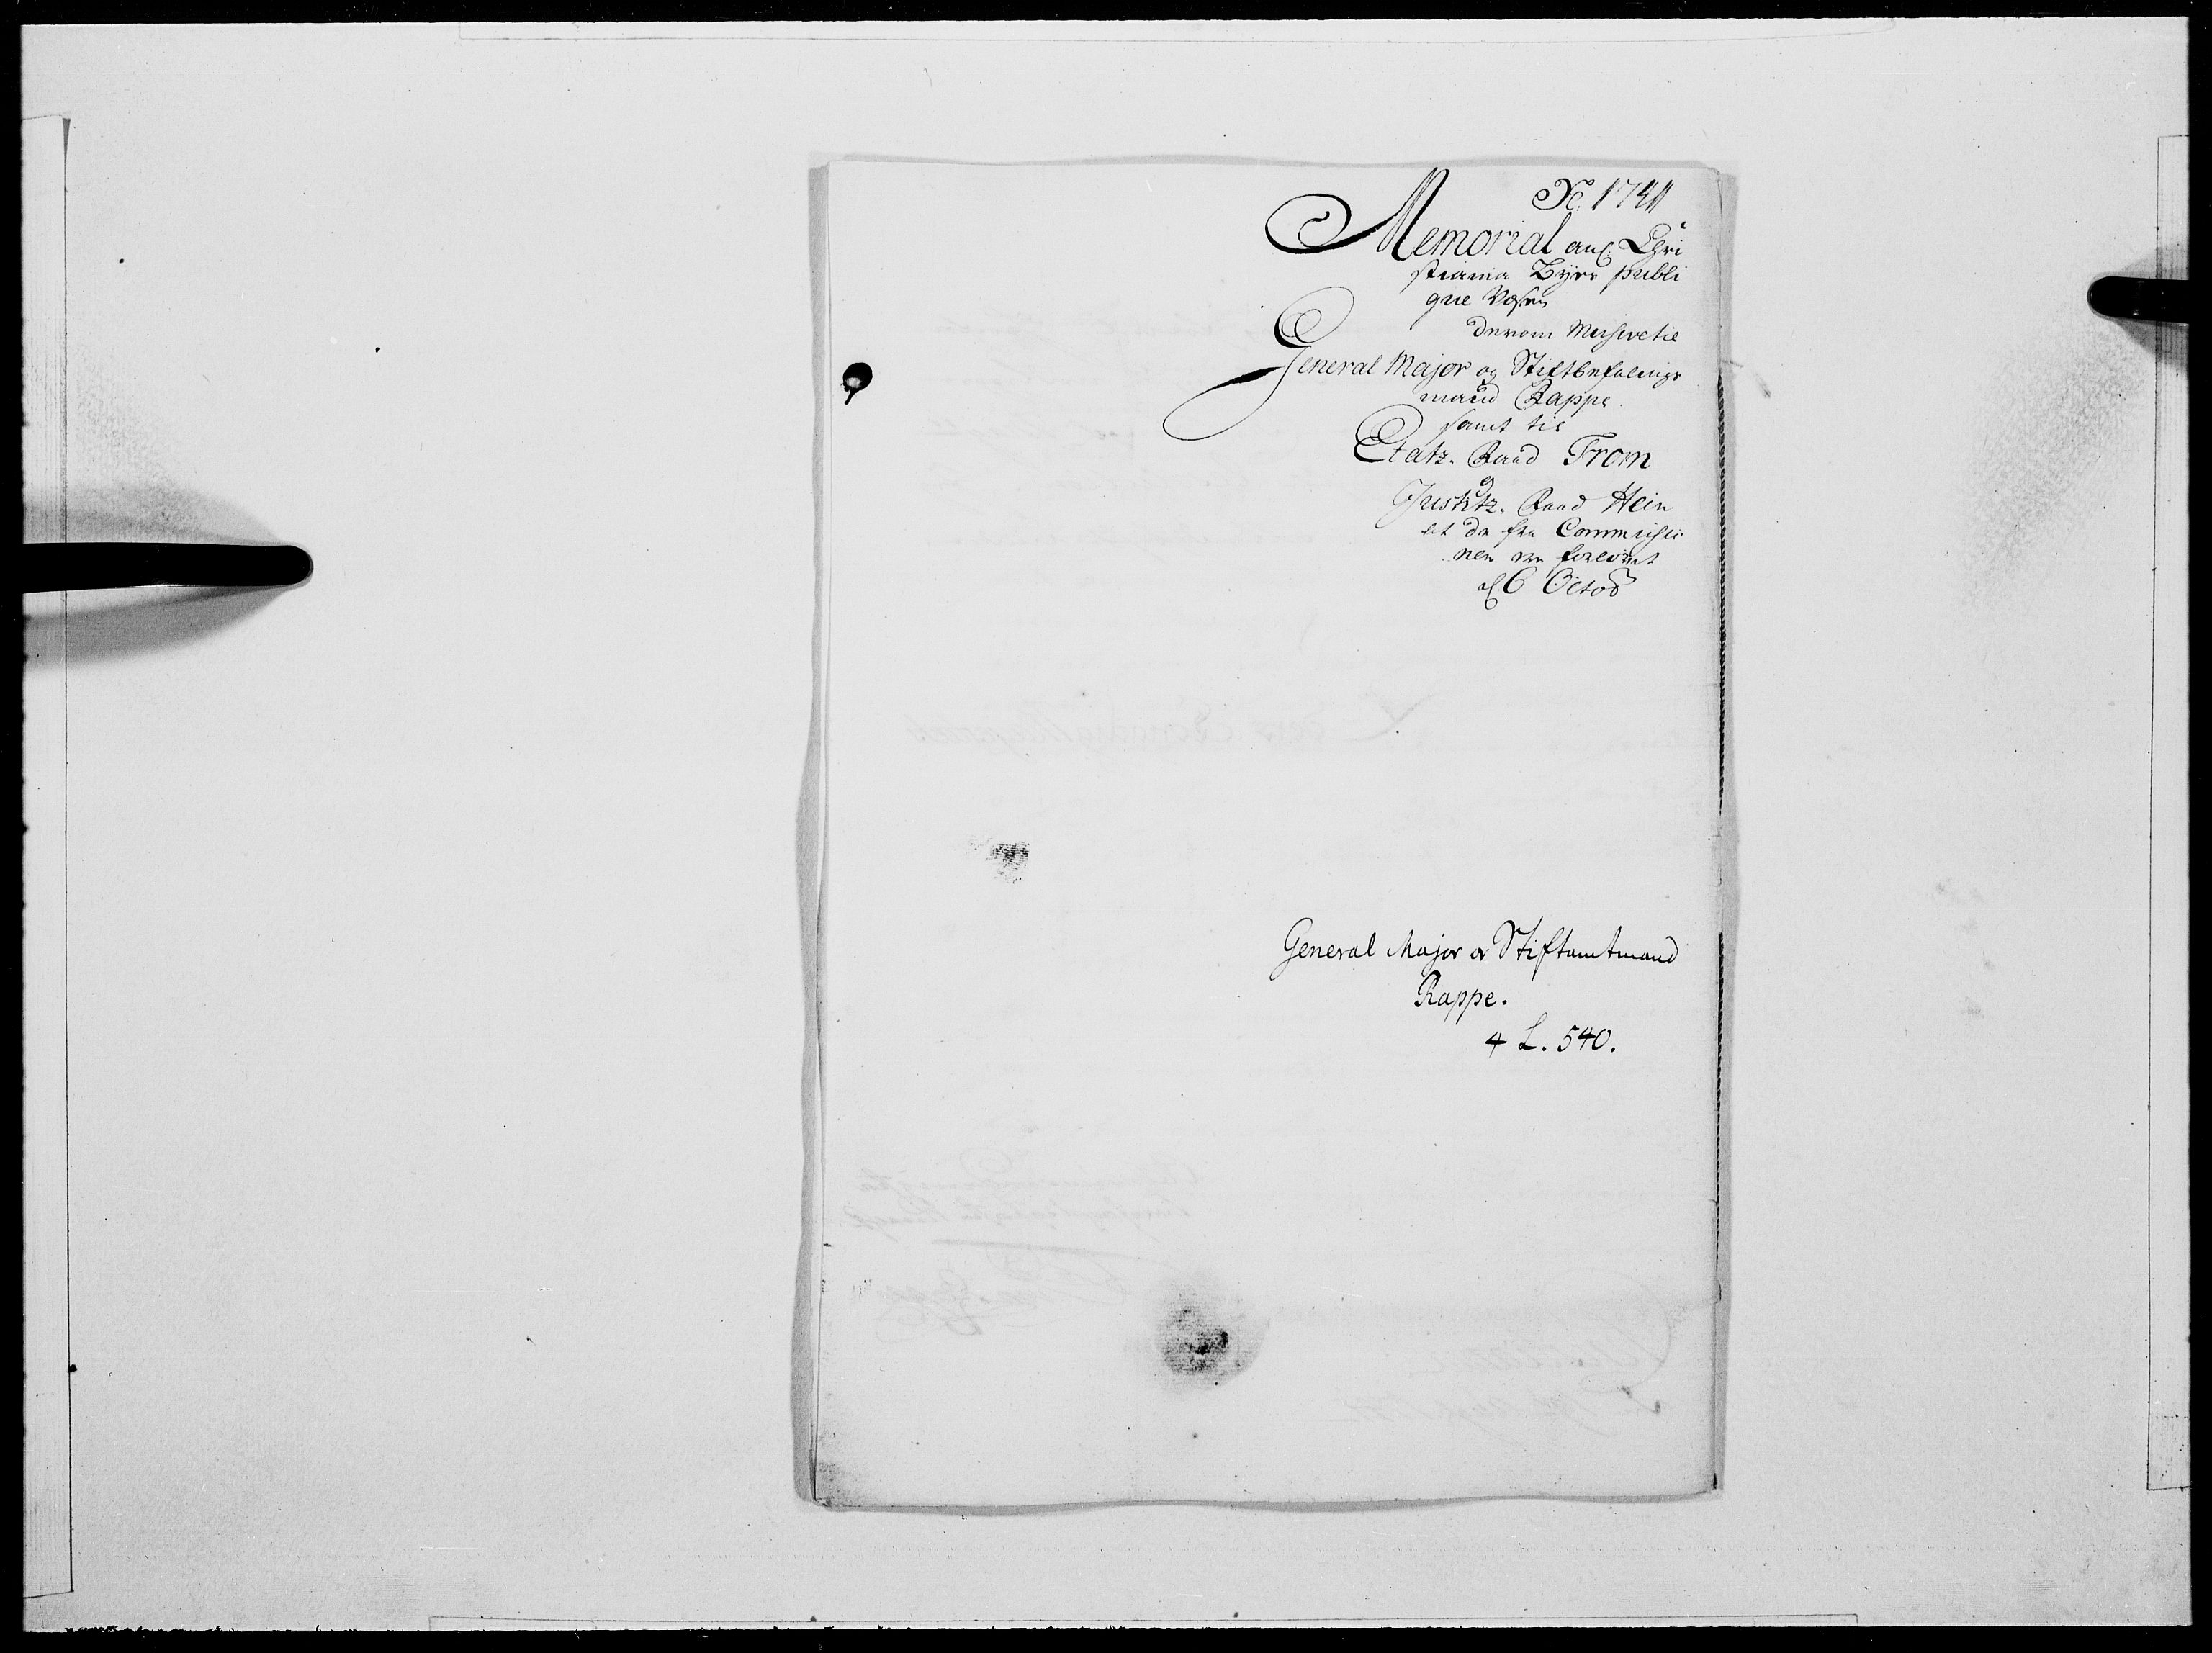 No. 1741
Memorial ang Chri
stiania Byes publi
que Væsen
derom Missive til
General Major og Stiftbefalings
mand Rappe.
samt til
Etatz-Raad From
og
Justitz-Raad Hein
at de fra Commissio
nen ere forlovet
af 6 Octob
General Major og Stiftamtmand
Rappe.
4 L. 540.